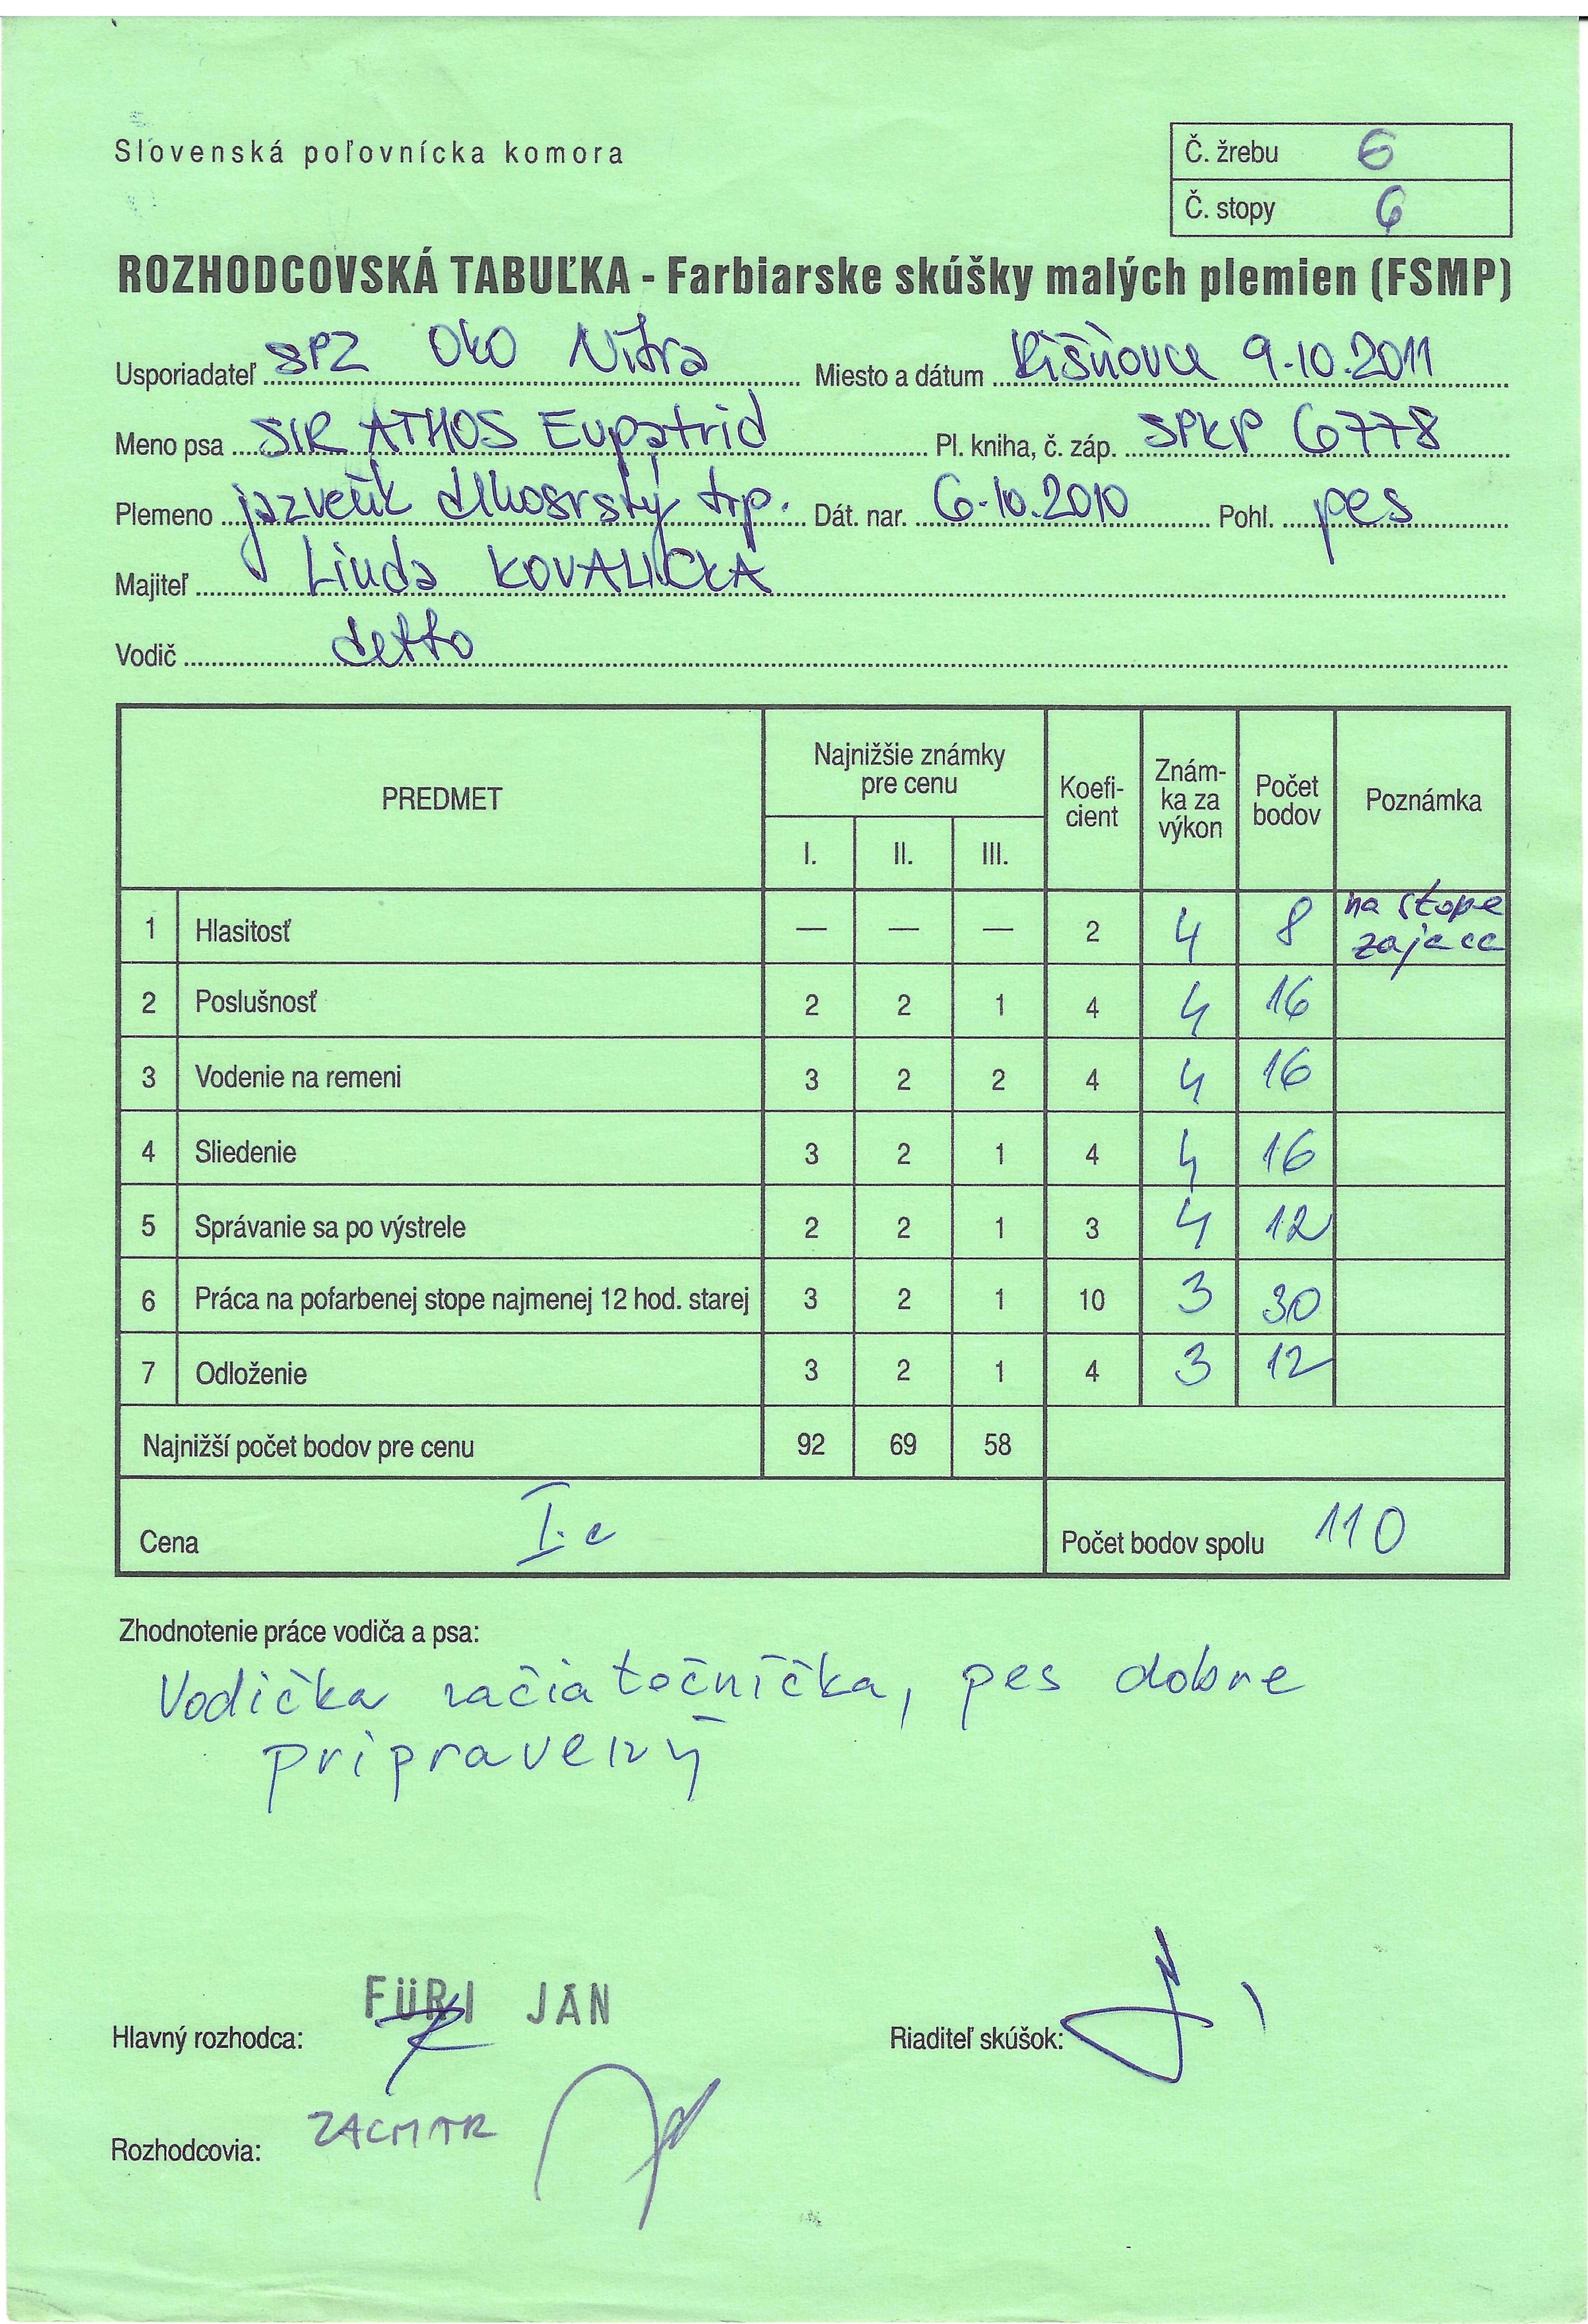 Slovenská poľovnícka komora
Č. žrebu 6
Č. stopy 6
ROZHODCOVSKÁ TABUĽKA - Farbiarske skúšky malých plemien (FSMP)
Usporiadateľ SPZ OKO Nitra Miesto a dátum Rišňovce 9.10.2011
Meno psa SIR ATHOS Eupatrid Pl. kniha, č. záp. SPKP 6778
Plemeno jazvečík dlhosrstý trp. Dát. nar. 6.10.2010 Pohl. pes
Majiteľ Linda KOVALICKA
Vodič detto
PREDMET Najnižšie známky pre cenu I. II. III. Koefi-cient Znám-ka za výkon Počet bodov Poznámka
1 Hlasitosť — — — 2 4 8 na stope zajace
2 Poslušnosť 2 2 1 4 4 16
3 Vodenie na remeni 3 2 2 4 4 16
4 Sliedenie 3 2 1 4 4 16
5 Správanie sa po výstrele 2 2 1 3 4 12
6 Práca na pofarbenej stope najmenej 12 hod. starej 3 2 1 10 3 30
7 Odloženie 3 2 1 4 3 12
Najnižší počet bodov pre cenu 92 69 58
Cena I. c Počet bodov spolu 110
Zhodnotenie práce vodiča a psa:
Vodička začiatočníčka, pes dobre
pripravený
FÜRI JÁN
Hlavný rozhodca: Riaditeľ skúšok:
Rozhodcovia: